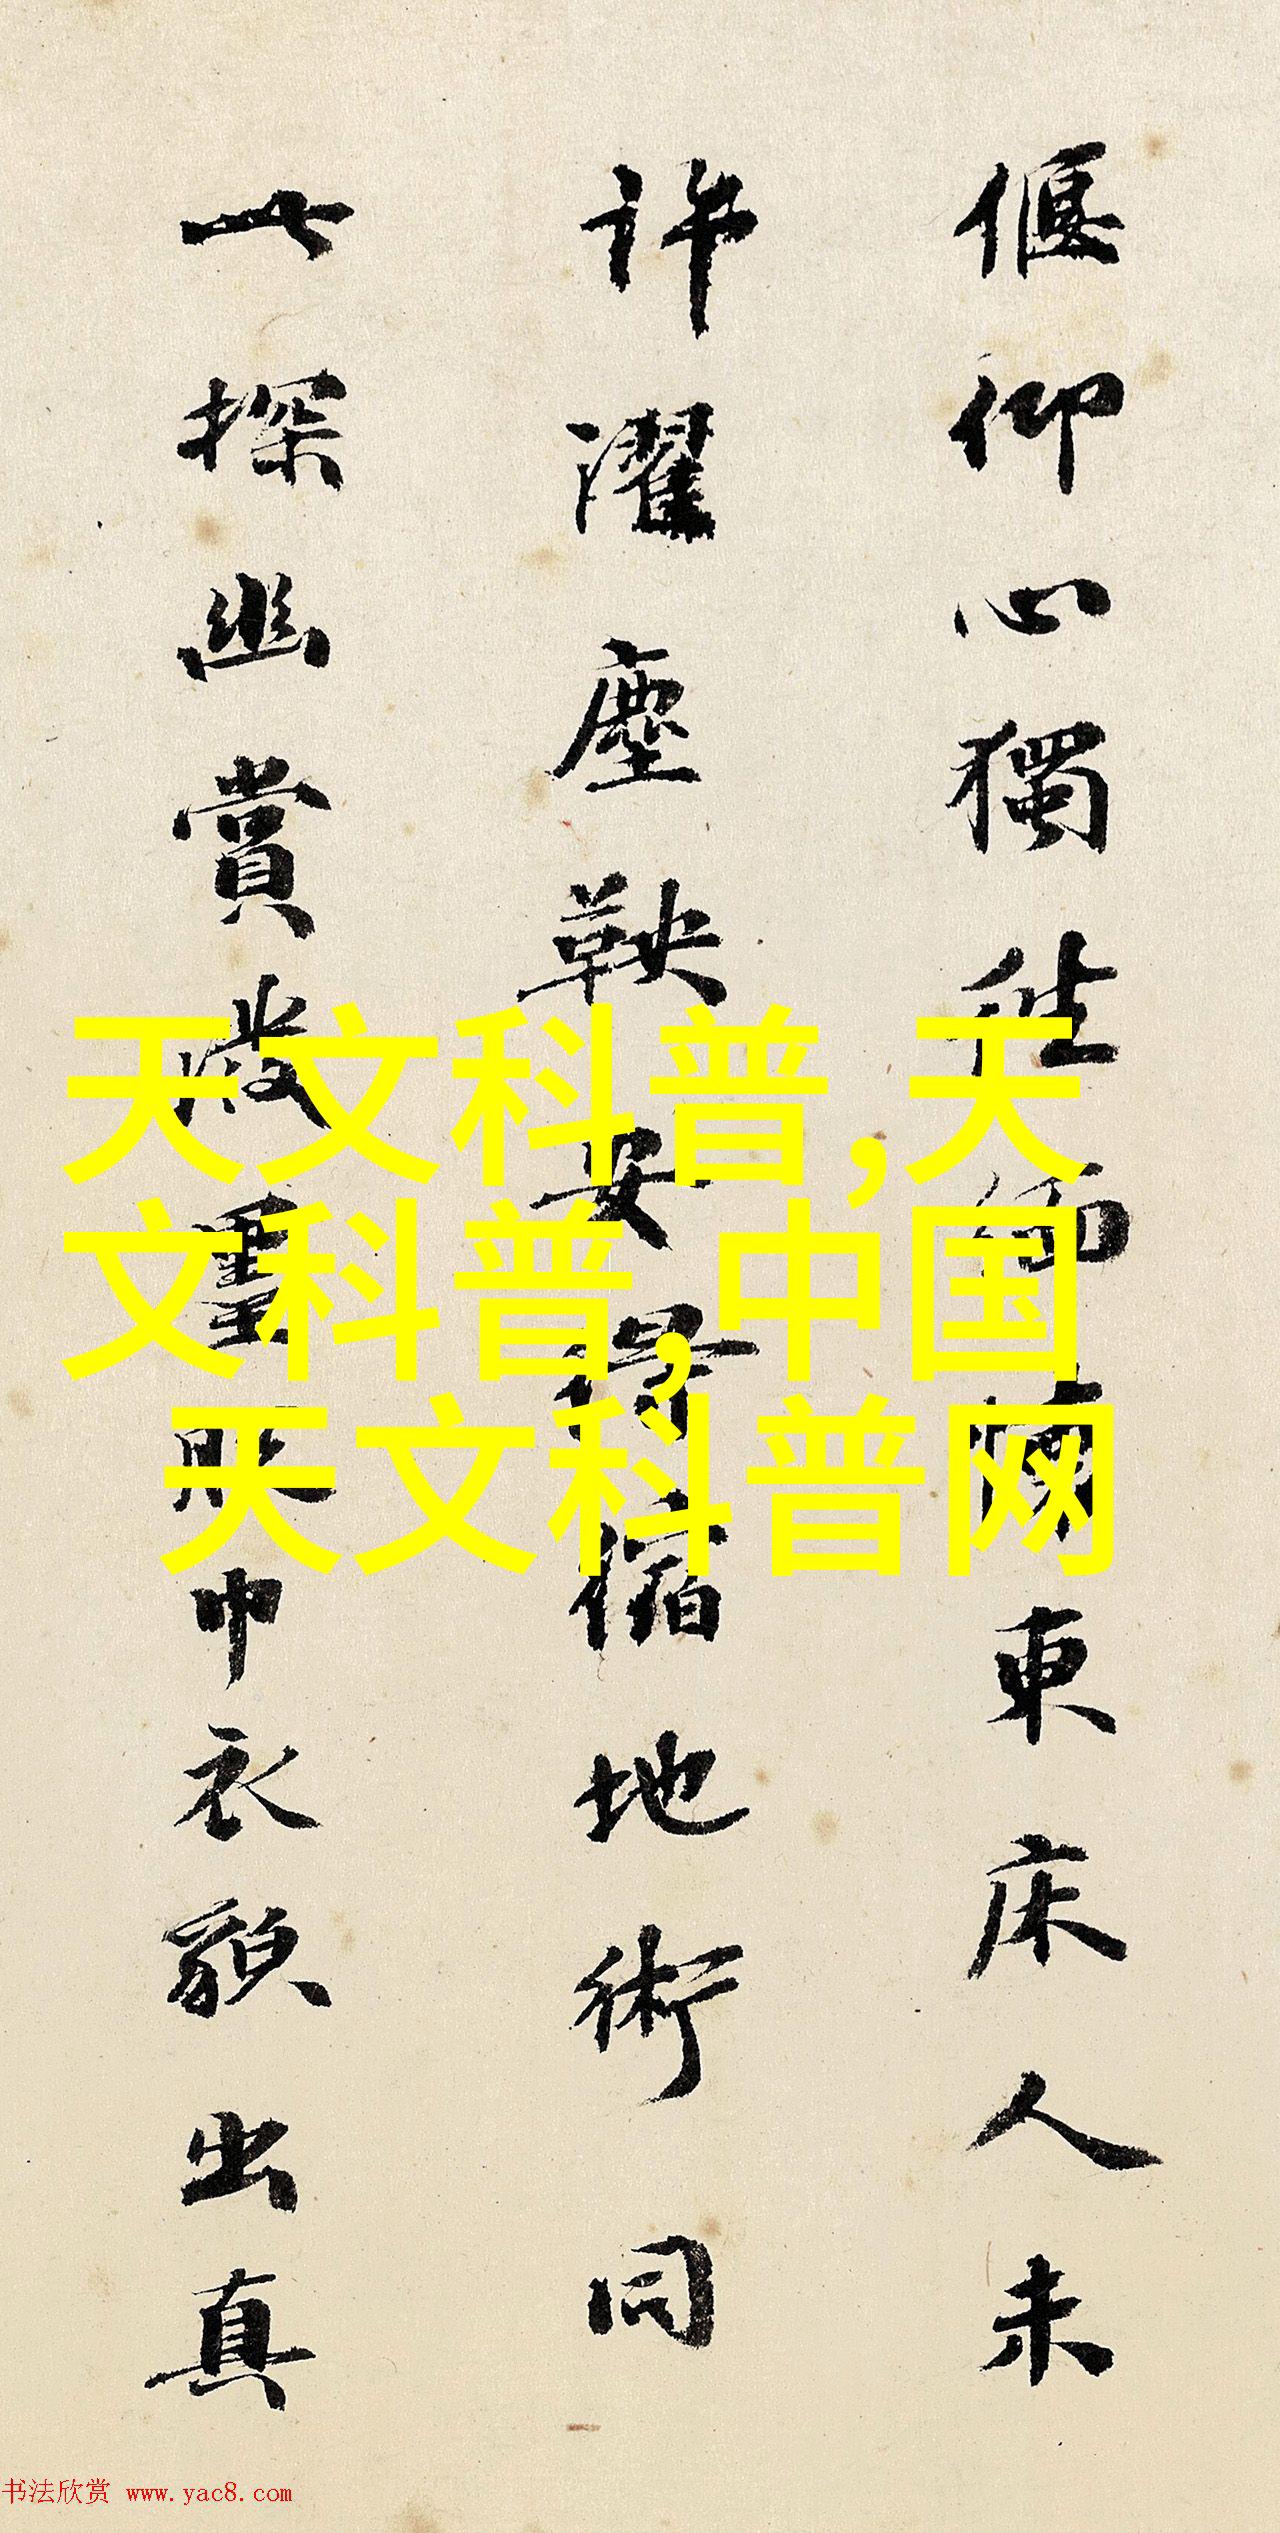 偃仰心獨往師東床人未
許濯塵鞅安得縮地術同
此探幽賞潑墨巾衣貌出真
天文科普,天
文科普,中国
天文科普网
书法欣赏 www.yac8.com